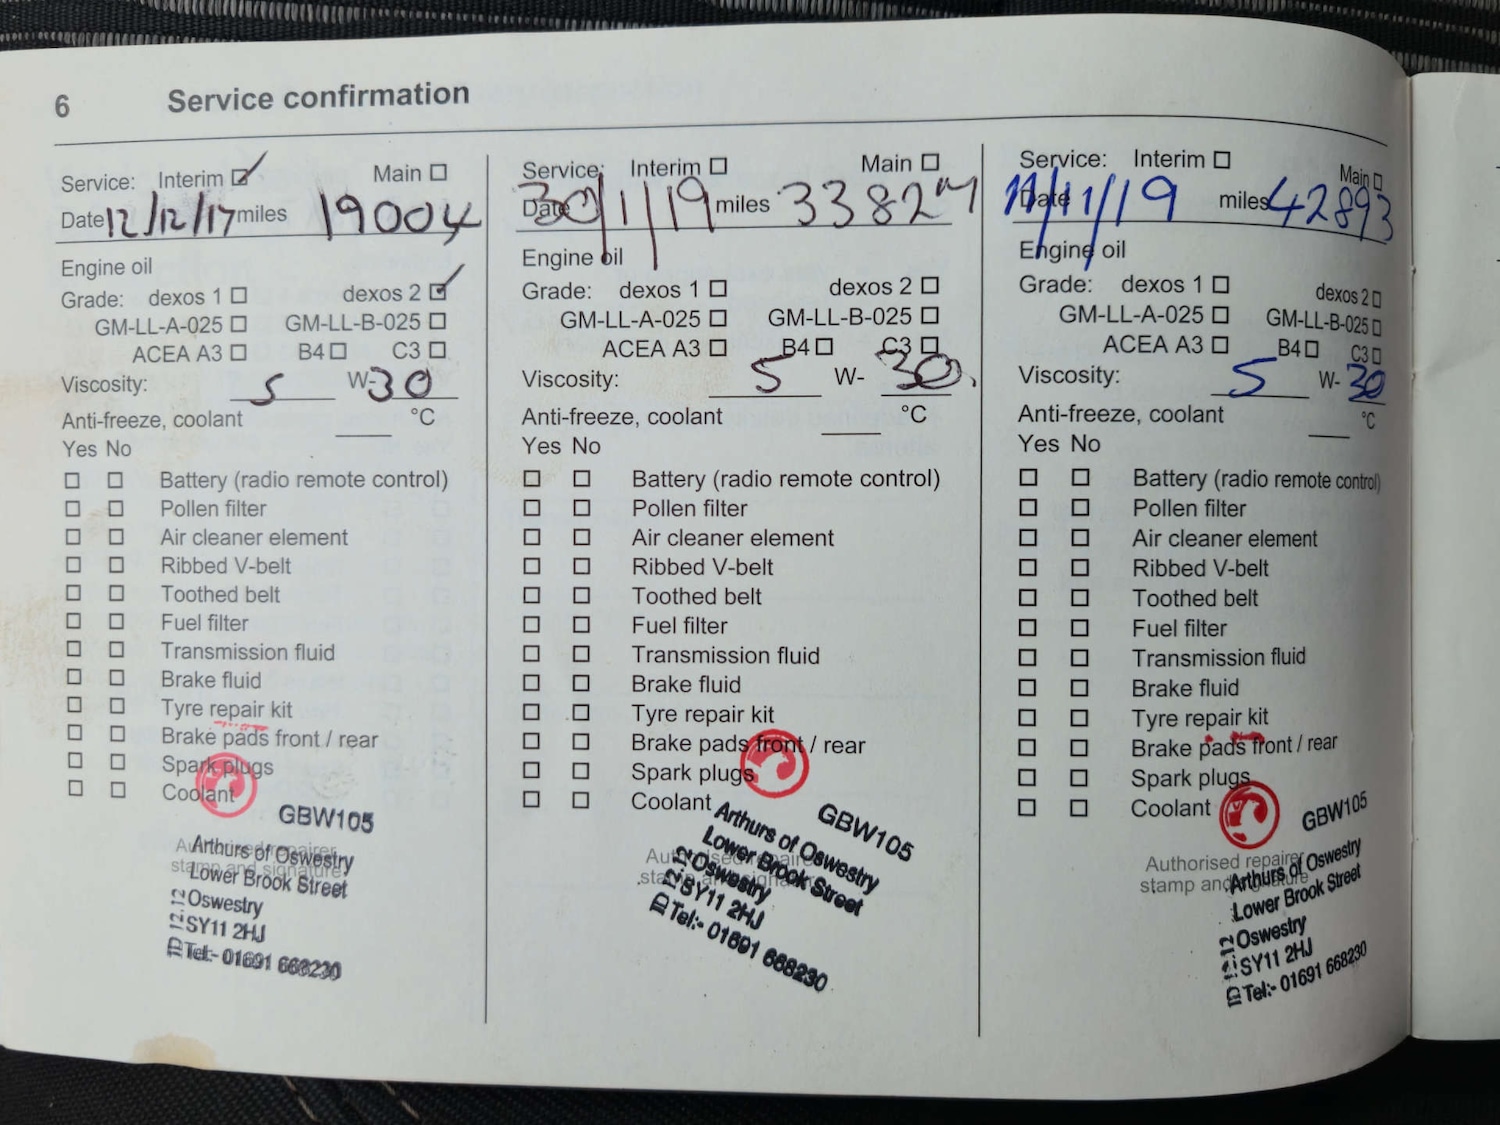 6 Service confirmation
Service: Interim ☑ Main ☐
Date 12/12/17 miles 19004
Engine oil
Grade: dexos 1 ☐ dexos 2 ☑
GM-LL-A-025 ☐ GM-LL-B-025 ☐
ACEA A3 ☐ B4 ☐ C3 ☐
Viscosity: 5 W-30
Anti-freeze, coolant ____ °C
Yes No
☐ ☐ Battery (radio remote control)
☐ ☐ Pollen filter
☐ ☐ Air cleaner element
☐ ☐ Ribbed V-belt
☐ ☐ Toothed belt
☐ ☐ Fuel filter
☐ ☐ Transmission fluid
☐ ☐ Brake fluid
☐ ☐ Tyre repair kit
☐ ☐ Brake pads front / rear
☐ ☐ Spark plugs
☐ ☐ Coolant
GBW105
Authorised repairer
stamp and signature
Arthurs of Oswestry
Lower Brook Street
Oswestry
SY11 2HJ
Tel:- 01691 668230
Service: Interim ☐ Main ☐
Date 30/1/19 miles 33827M
Engine oil
Grade: dexos 1 ☐ dexos 2 ☐
GM-LL-A-025 ☐ GM-LL-B-025 ☐
ACEA A3 ☐ B4 ☐ C3 ☐
Viscosity: 5 W- 30.
Anti-freeze, coolant ____ °C
Yes No
☐ ☐ Battery (radio remote control)
☐ ☐ Pollen filter
☐ ☐ Air cleaner element
☐ ☐ Ribbed V-belt
☐ ☐ Toothed belt
☐ ☐ Fuel filter
☐ ☐ Transmission fluid
☐ ☐ Brake fluid
☐ ☐ Tyre repair kit
☐ ☐ Brake pads front / rear
☐ ☐ Spark plugs
☐ ☐ Coolant
GBW105
Authorised repairer
stamp and signature
Arthurs of Oswestry
Lower Brook Street
Oswestry
SY11 2HJ
Tel:- 01691 668230
Service: Interim ☐ Main ☐
Date 11/11/19 miles 42893
Engine oil
Grade: dexos 1 ☐ dexos 2 ☐
GM-LL-A-025 ☐ GM-LL-B-025 ☐
ACEA A3 ☐ B4 ☐ C3 ☐
Viscosity: 5 W- 30
Anti-freeze, coolant ____ °C
Yes No
☐ ☐ Battery (radio remote control)
☐ ☐ Pollen filter
☐ ☐ Air cleaner element
☐ ☐ Ribbed V-belt
☐ ☐ Toothed belt
☐ ☐ Fuel filter
☐ ☐ Transmission fluid
☐ ☐ Brake fluid
☐ ☐ Tyre repair kit
☐ ☐ Brake pads front / rear
☐ ☐ Spark plugs
☐ ☐ Coolant
GBW105
Authorised repairer
stamp and signature
Arthurs of Oswestry
Lower Brook Street
Oswestry
SY11 2HJ
Tel:- 01691 668230